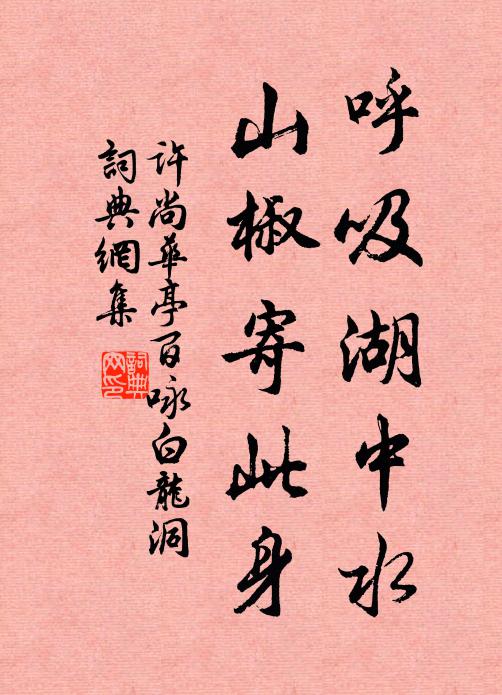 呼吸湖中水
山椒寄此身
許尚華亭百咏白龍洞
詞典網集
詞典網印